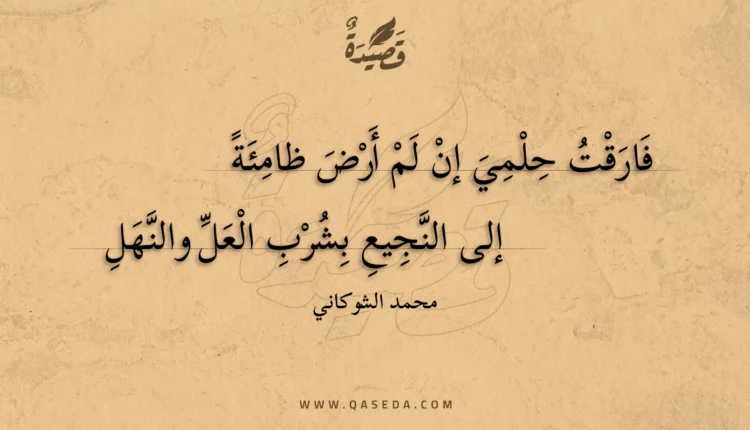 قَصِيْدَةٌ
فَارَقْتُ حِلْمِيَ إنْ لَمْ أَرْضَ ظامِئَةً
إلى النَّجِيعِ بِشُرْبِ الْعَلِّ والنَّهَلِ
محمد الشوكاني
WWW.QASEDA.COM